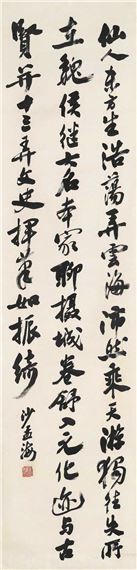 仙人东方生浩蕩弄雲海沛然乘天游獨往失所
在魏侯继大名本家聊摄城卷舒入元化迹与古
賢并十三弄文史揮筆如振綺
沙孟海